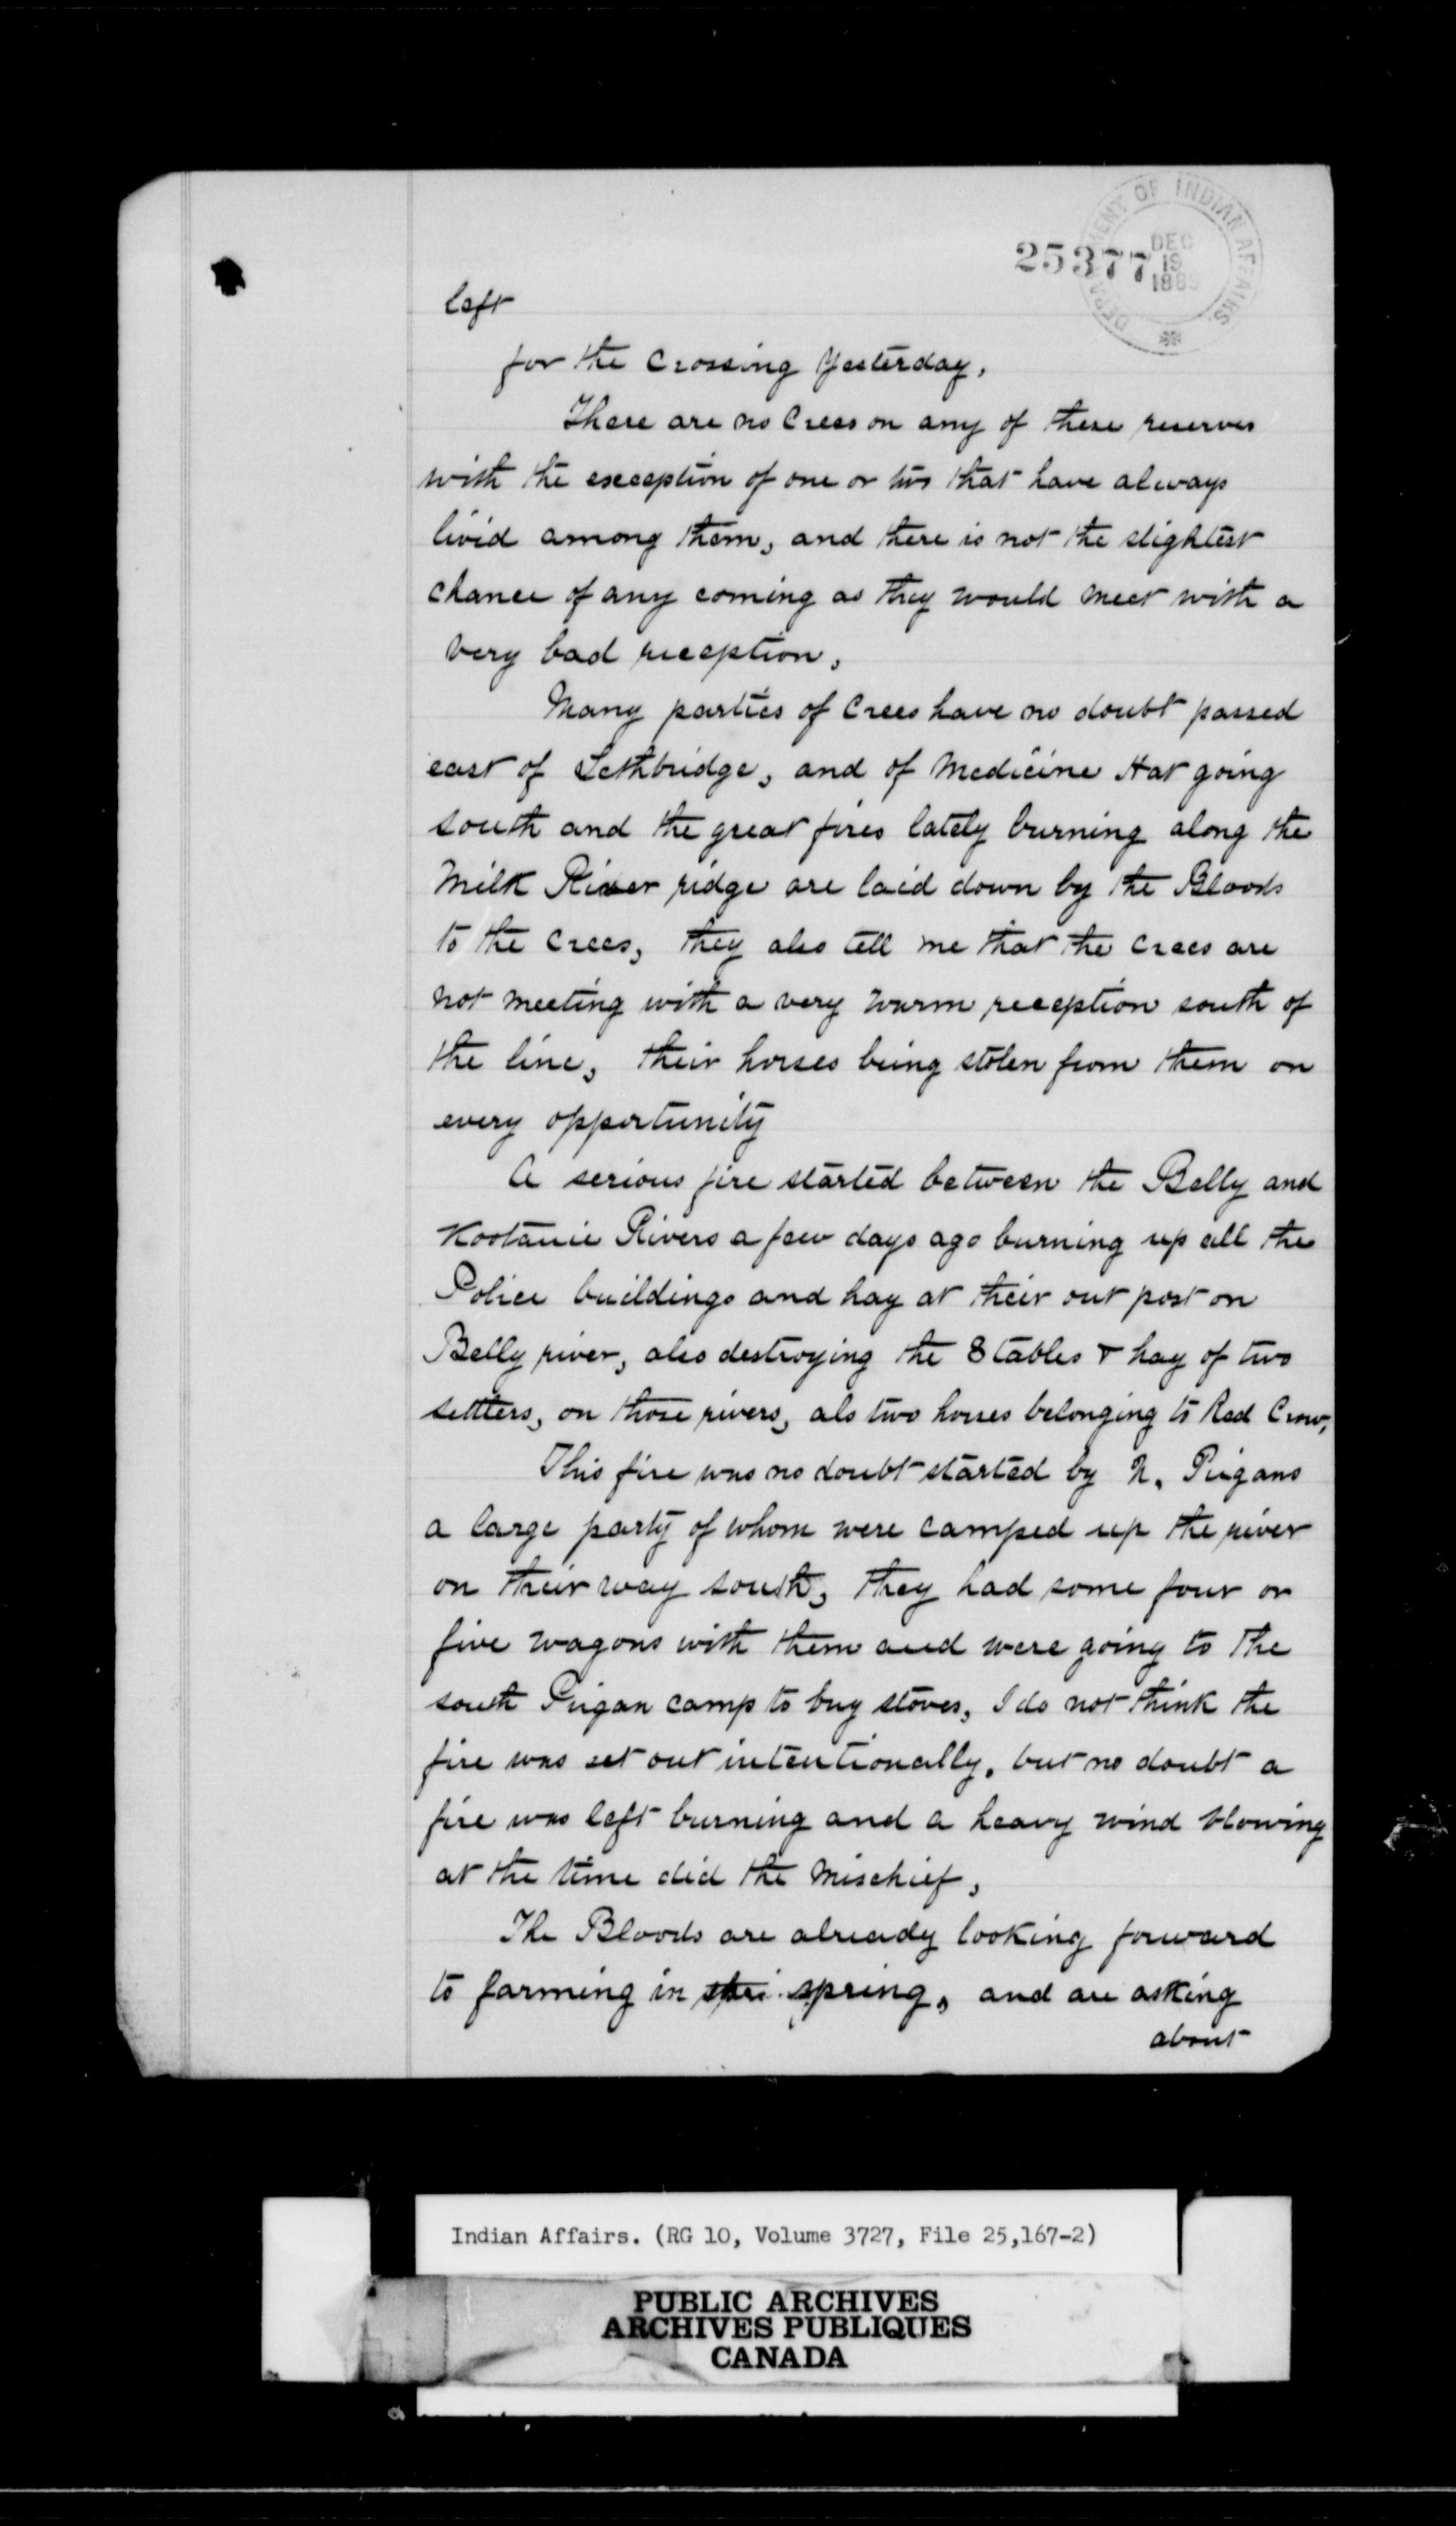 25377
DEPARTMENT OF INDIAN AFFAIRS
DEC
19
188
left
for the Crossing Yesterday,
There are no Crees on any of these reserves
with the exception of one or two that have always
livid among them, and there is not the slightest
chance of any coming as they would meet with a
very bad reception,
Many parties of Crees have no doubt passed
east of Lethbridge, and of Medicine Hat going
south and the great fires lately burning along the
Milk River ridge are laid down by the Bloods
to the Crees, they also tell me that the Crees are
not meeting with a very warm reception south of
the line, their horses being stolen from them on
every opportunity
A serious fire started between the Belly and
Kootanie Rivers a few days ago burning up all the
Police buildings and hay at their out post on
Belly river, also destroying the Stables & hay of two
settlers, on those rivers, als two horses belonging to Red Crow,
This fire was no doubt started by N. Piegans
a large party of whom were camped up the river
on their way south, they had some four or
five wagons with them and were going to the
south Piegan camp to buy stoves, I do not think the
fire was set out intentionally, but no doubt a
fire was left burning and a heavy wind blowing
at the time did the mischief,
The Bloods are already looking forward
to farming in the spring, and are asking
about
Indian Affairs. (RG 10, Volume 3727, File 25,167-2)
PUBLIC ARCHIVES
ARCHIVES PUBLIQUES
CANADA